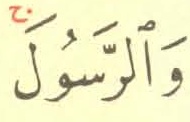 وَٱلرَّسُولَ ۛج